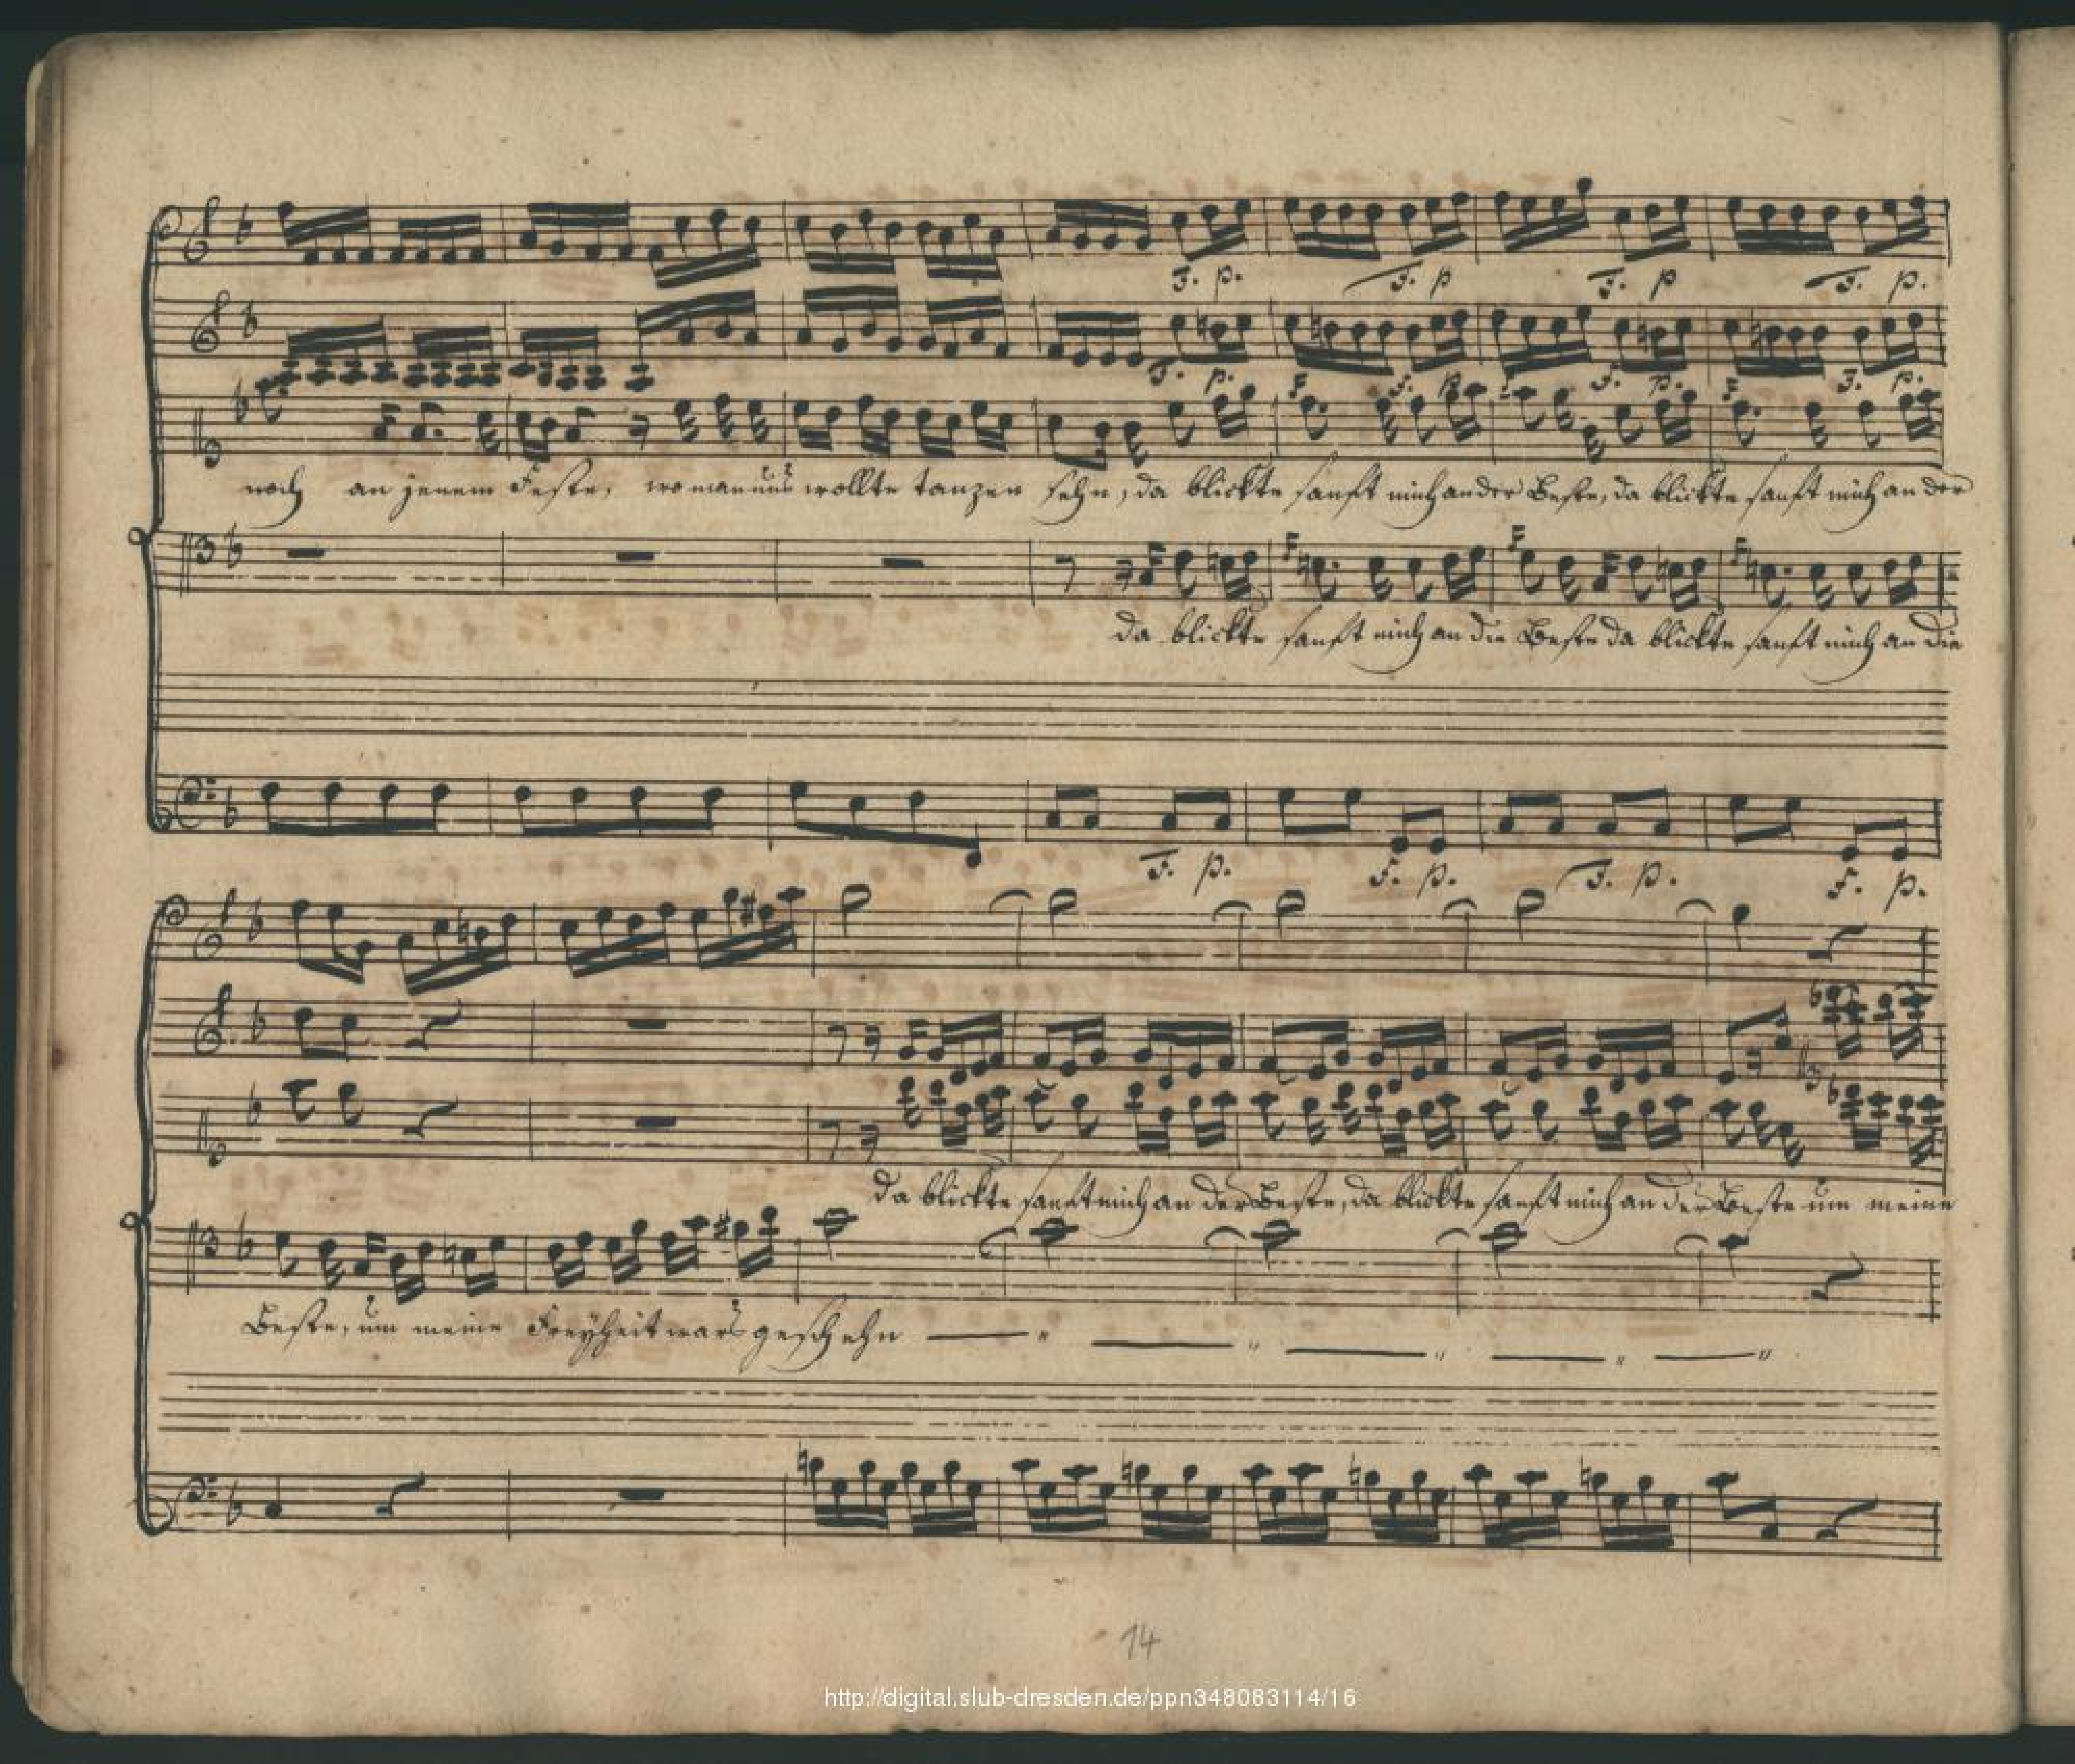 F. p. F. p F. p F. p.
F. p. F. p F. p. F. p.
noch an jenem Feste, wo man uns wollte tanzen sehn, da blickte sanft mich an der Beste, da blickte sanft mich an der
da blickte sanft mich an die Beste da blickte sanft mich an die
F. p. F. p. F. p. F. p.
da blickte sanft mich an der Beste, da blickte sanft mich an der Beste um meine
Beste, um meine Freyheit wars geschehn
14
http://digital.slub-dresden.de/ppn348083114/16